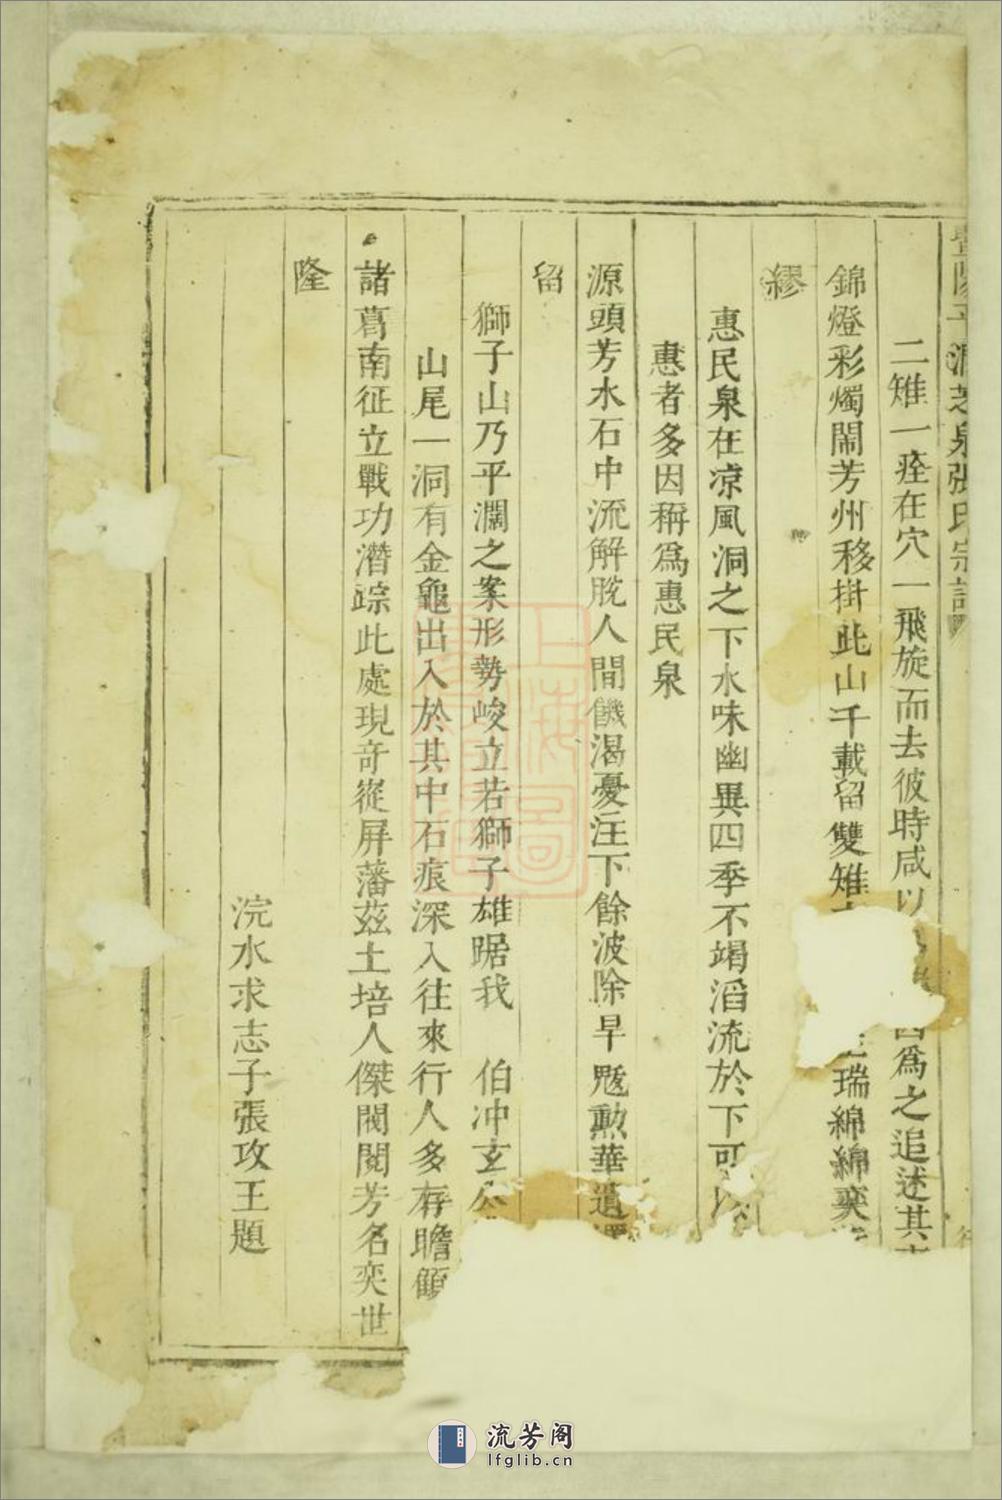 暨陽平濶芝泉張氏宗譜
二雉一痊在穴一飛旋而去彼時咸以
為之追述其
錦燈彩燭鬧芳州移掛此山千載留雙雉
瑞綿綿奕
繆
惠民泉在凉風洞之下水味幽異四季不竭滔流於下可
惠者多因稱爲惠民泉
源頭芳水石中流解脫人間饑渴憂注下餘波除旱魃勲華遺
留
獅子山乃平濶之案形勢峻立若獅子雄踞我 伯冲玄公
山尾一洞有金龜出入於其中石痕深入往來行人多存瞻顧
諸葛南征立戰功潛踪此處現奇從屏藩茲土培人傑閥閱芳名奕世
隆
浣水求志子張攻王題
上海圖
流芳阁
lfglib.cn